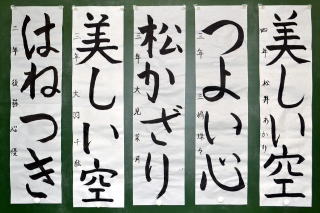 美しい空
四年 松井あかり
つよい心
三年
松かざり
三年 大見菜月
美しい空
三年 大羽千紘
はねつき
二年 後藤心優